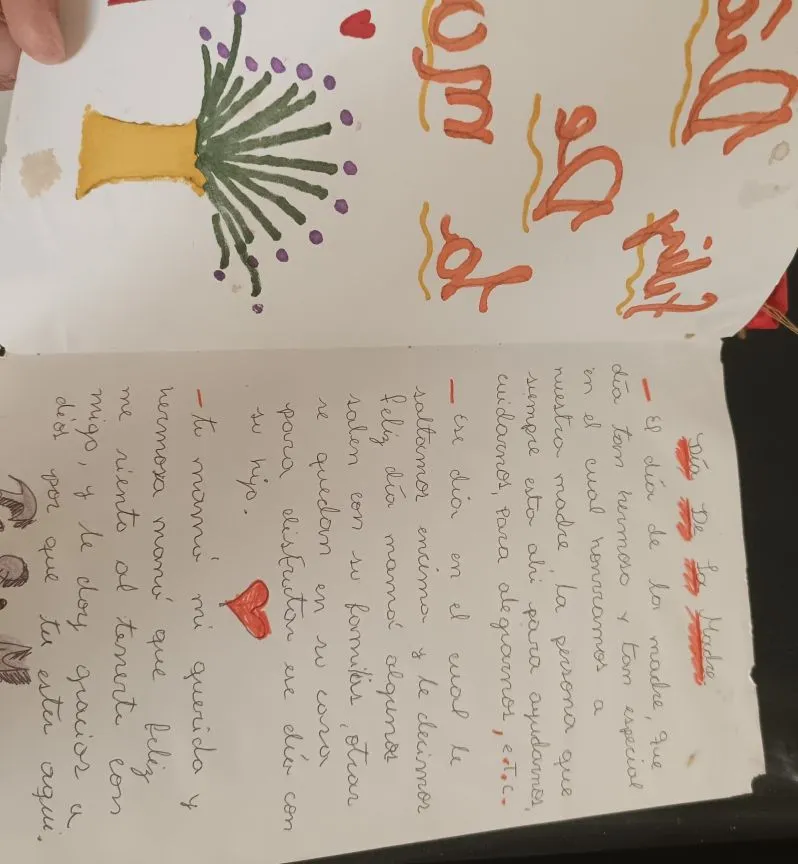 Feliz Día
De
la
Día De La Madre.
- El día de la madre, que
día tan hermoso y tan especial
en el cual honrramos a
nuestra madre, la persona que
siempre esta ahi para ayudarnos,
cuidarnos, para alegrarnos, etc.
- Ese día en el cual le
saltamos encima y le decimos
feliz día mamá algunos
salen con su familias, otras
se quedan en su casa
para disfrutar ese día con
su hijo.
- tu mamá mi querida y
hermosa mamá que feliz
me siento al tenerte con
migo, y le doy gracias a
dios por que tu estas aqui.